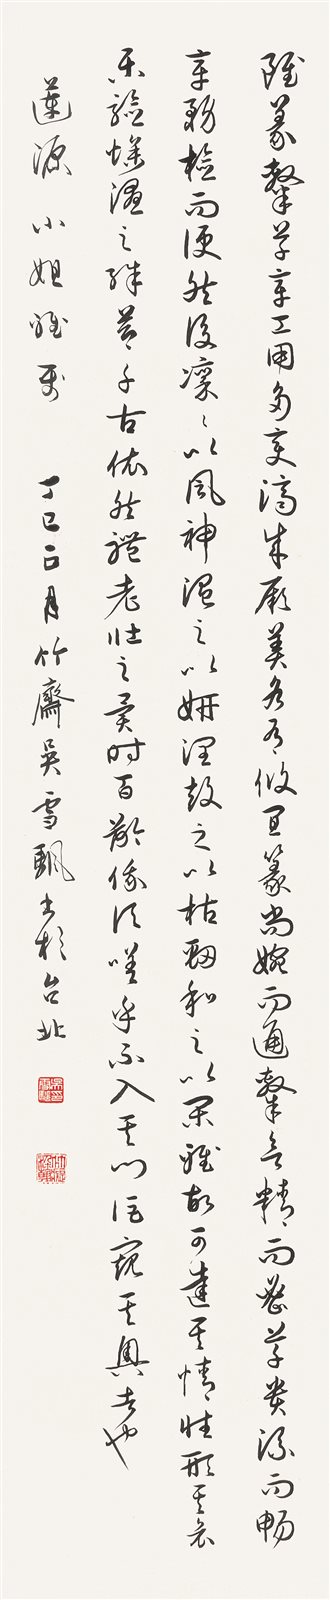 雖篆隸草章工用多變濟成厥美各有攸宜篆尚婉而通隸欲精而密草貴流而暢
章務檢而便然後凜之以風神溫之以妍潤鼓之以枯勁和之以閑雅故可達其情性形其哀
樂驗燥濕之殊節千古依然體老壯之異時百齡俄頃嗟乎不入其門詎窺其奧者也
蓮源小姐雅屬 丁巳月竹齋吳雪書於台北